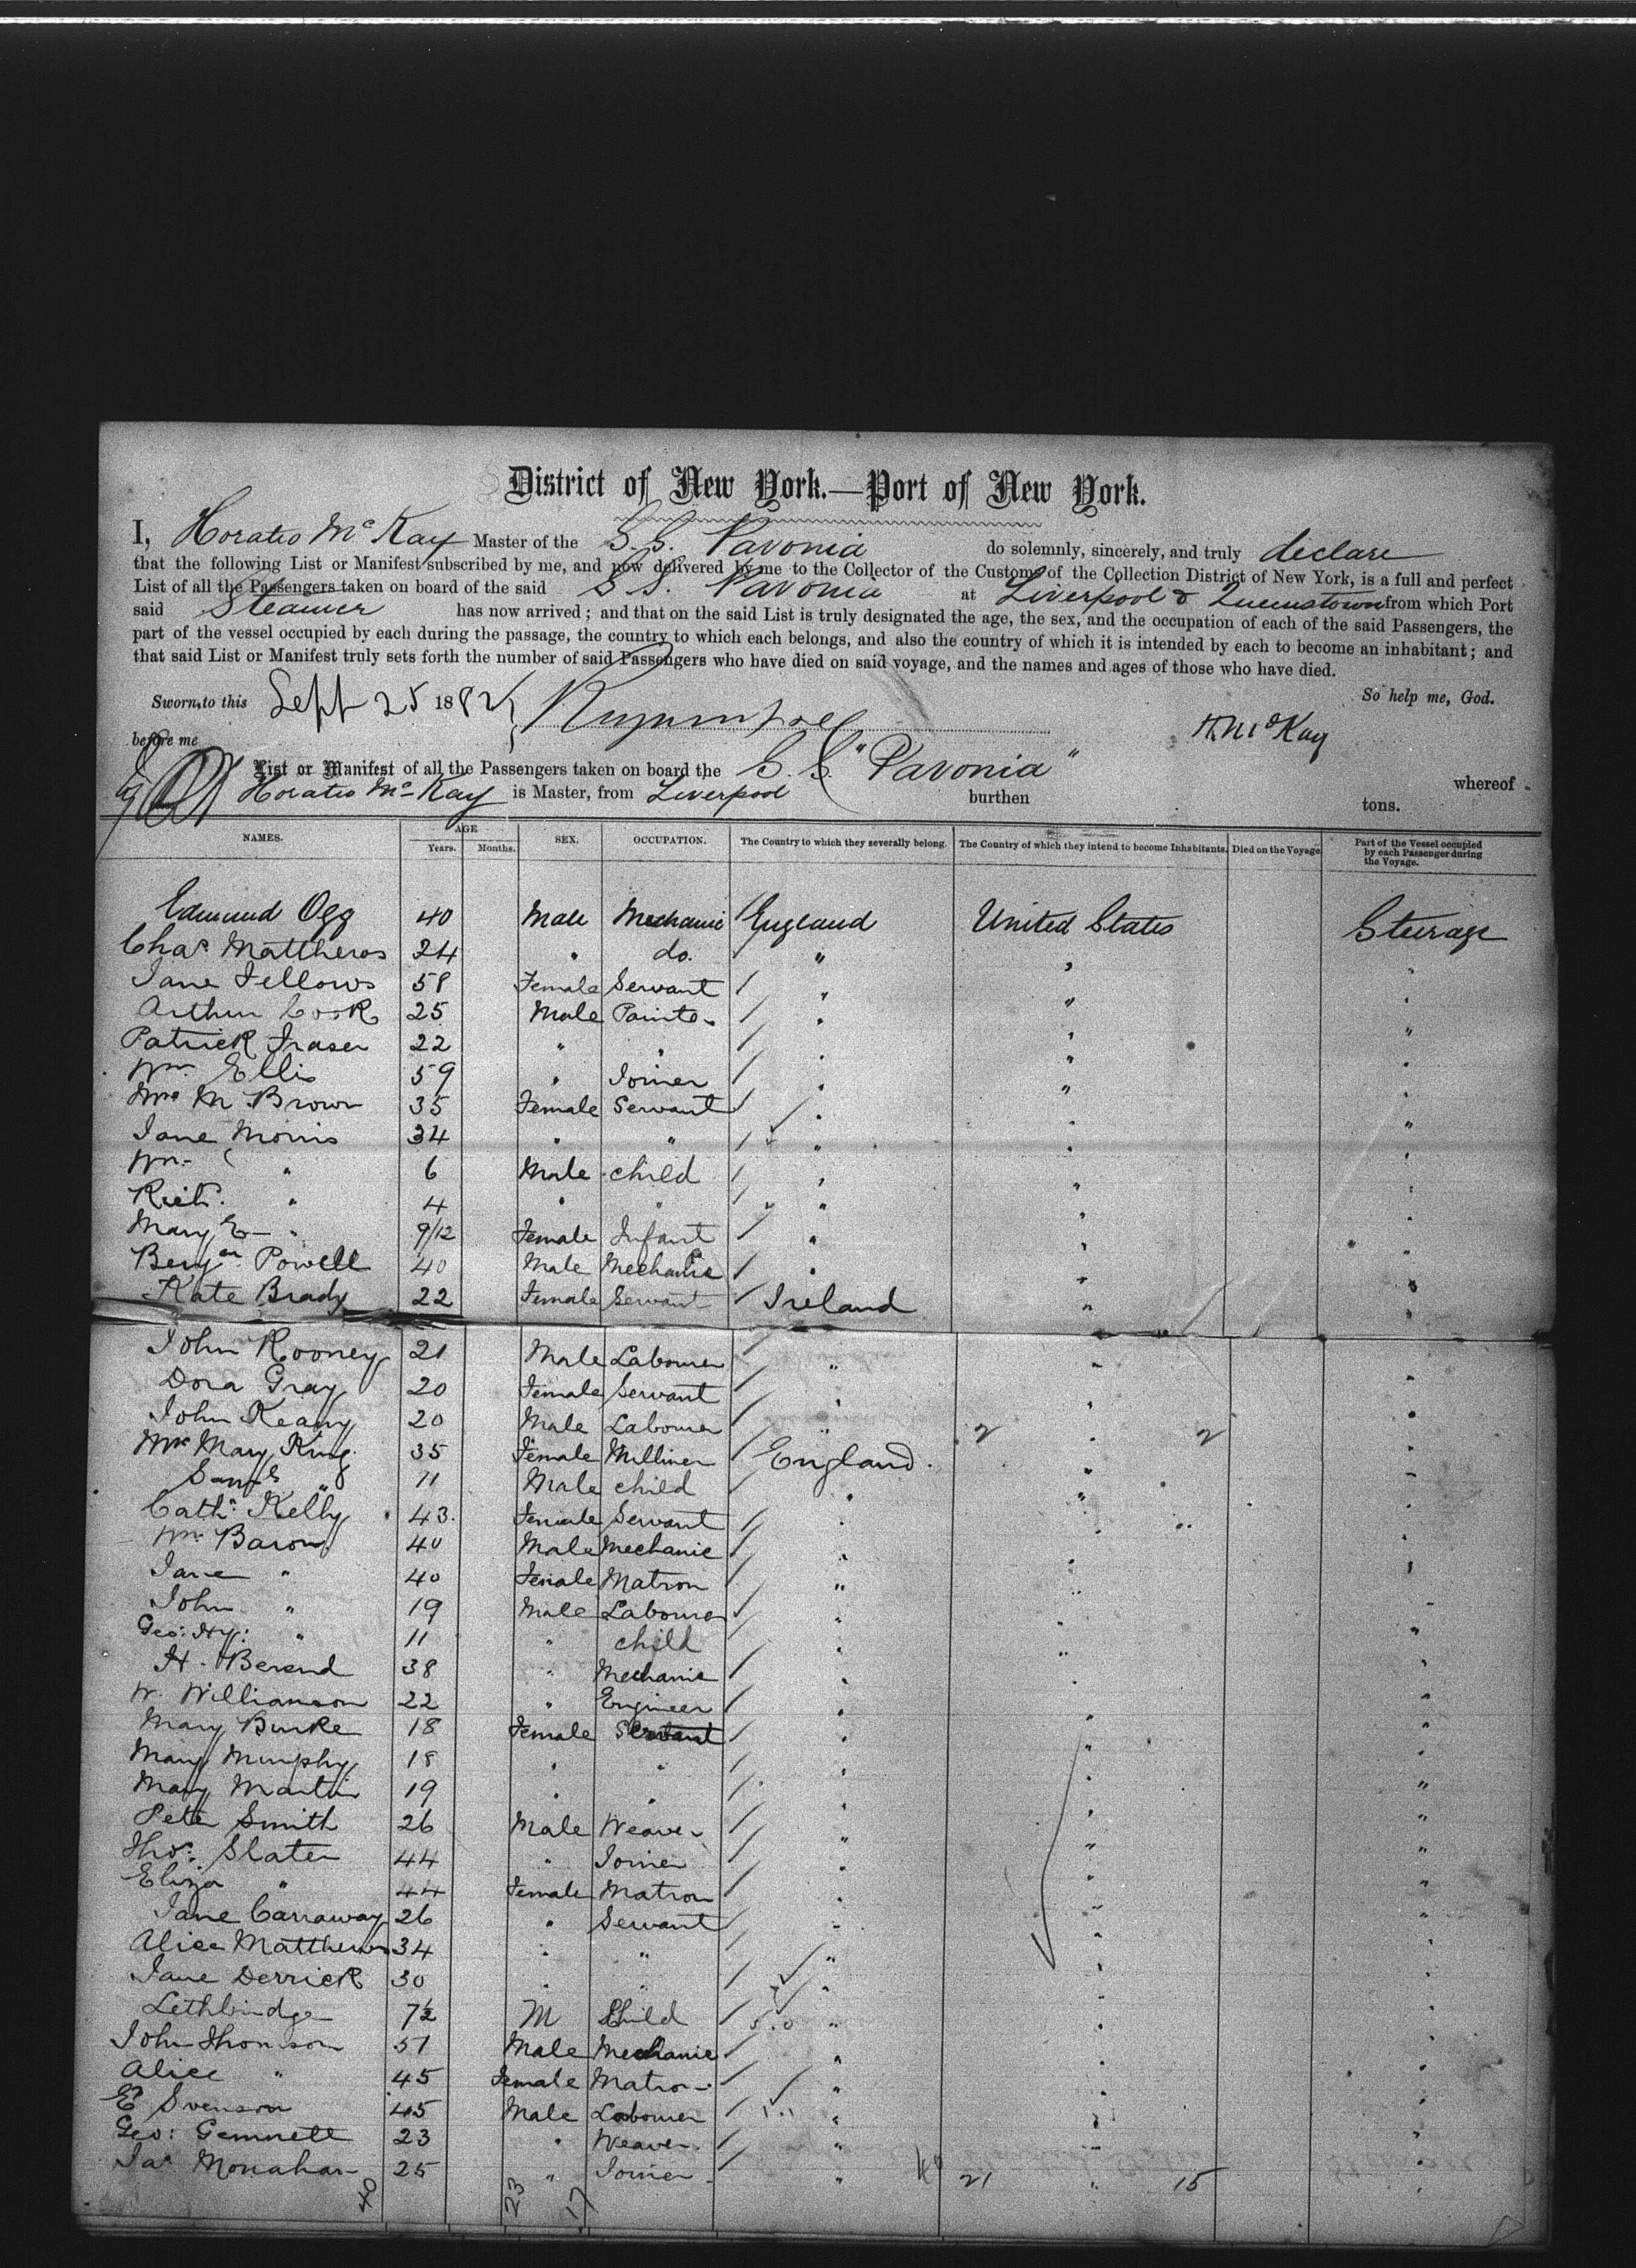 District of New York.—Port of New York.
I, Horatio McKay Master of the S.S. Pavonia do solemnly, sincerely, and truly declare
that the following List or Manifest subscribed by me, and now delivered by me to the Collector of the Customs of the Collection District of New York, is a full and perfect
List of all the Passengers taken on board of the said S S. Pavonia at Liverpool & Queenstown from which Port
said Steamer has now arrived; and that on the said List is truly designated the age, the sex, and the occupation of each of the said Passengers, the
part of the vessel occupied by each during the passage, the country to which each belongs, and also the country of which it is intended by each to become an inhabitant; and
that said List or Manifest truly sets forth the number of said Passengers who have died on said voyage, and the names and ages of those who have died.
Sworn to this Sept 25 1882 So help me, God.
before me H McKay
List or Manifest of all the Passengers taken on board the S. S. "Pavonia" whereof
Horatio McKay is Master, from Liverpool burthen tons.
NAMES. AGE Years. Months. SEX. OCCUPATION. The Country to which they severally belong. The Country of which they intend to become Inhabitants. Died on the Voyage. Part of the Vessel occupied by each Passenger during the Voyage.
Edmund Ogg 40 Male Mechanic England United States Steerage
Chas. Matthews 24 " do. " " "
Jane Fellows 58 Female Servant " " "
Arthur Cook 25 Male Painter " " "
Patrick Fraser 22 " " " " "
Wm Ellis 59 " Joiner " " "
Mrs M Brown 35 Female Servant " " "
Jane Morris 34 " " " " "
Wm. " 6 Male child " " "
Richd. " 4 " " " " "
Mary E— " 9/12 Female Infant " " "
Benjan. Powell 40 Male Mechanic " " "
Kate Brady 22 Female Servant Ireland " "
John Rooney 21 Male Labourer " " "
Dora Gray 20 Female Servant " " "
John Keany 20 Male Labourer " 2 " 2 "
Mrs Mary King 35 Female Milliner England. " "
Saml " 11 Male child " " "
Cathe. Kelly 43. Female Servant " " "
Wm. Baron 40 Male Mechanic " " "
Jane " 40 Female Matron " " "
John " 19 Male Labourer " " "
Geo: Hy: " 11 " child " " "
H. Berend 38 " Mechanic " " "
W. Williamson 22 " Engineer " " "
Mary Burke 18 Female Servant " " "
Mary Murphy 18 " " " " "
Mary Martin 19 " " " " "
Peter Smith 26 Male Weaver " " "
Thos: Slater 44 " Joiner " " "
Eliza " 44 Female Matron " " "
Jane Carraway 26 " Servant " " "
Alice Matthews 34 " " " " "
Jane Derrick 30 " " " " "
Lethbridge 7½ M Child " " "
John Thomson 51 Male Mechanic " " "
Alice " 45 Female Matron " " "
E Svenson 45 Male Labourer " " "
Geo: Gemmell 23 " Weaver. " " "
Jas Monahan 25 " Joiner " 21 " 15 "
40 23 17